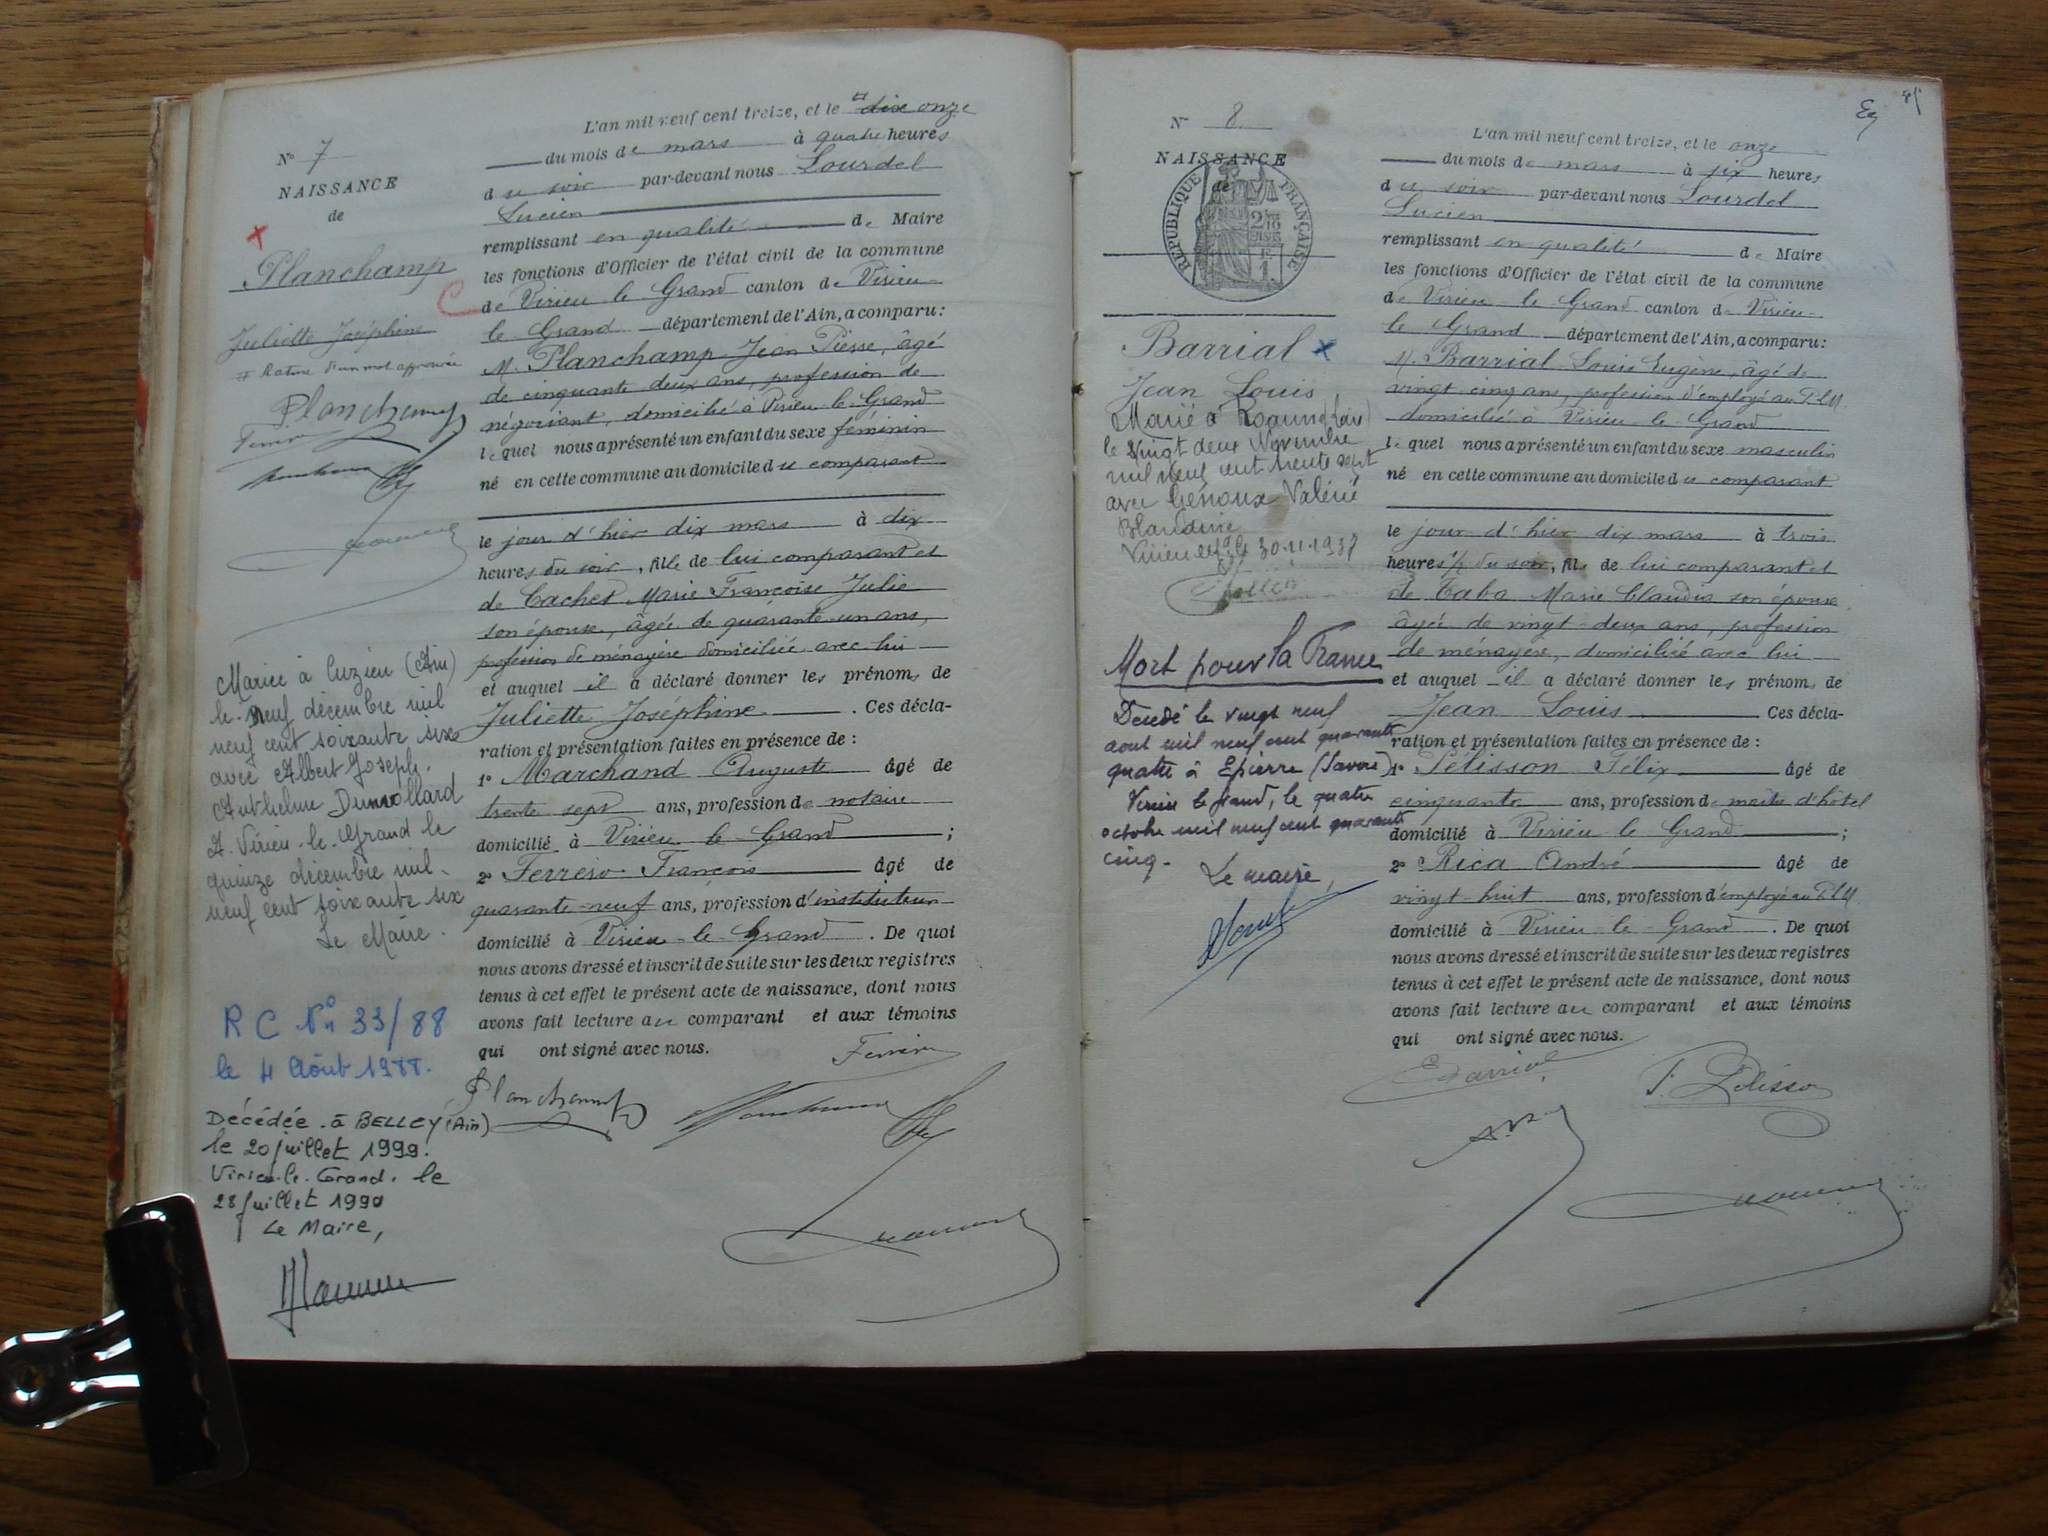 N° 7
NAISSANCE
de
Planchamp
Juliette Joséphine
# Rature d'un mot approuvée
Planchamp
Marchand
Mariée à Cuzieu (Ain)
le neuf décembre mil
neuf cent soixante six
avec Albert Joseph
Anthelme Dumollard
A Virieu-le-Grand le
quinze décembre mil
neuf cent soixante six
Le Maire.
RC N° 33/88
le 4 Août 1988.
Décédée à BELLEY (Ain)
le 20 juillet 1999.
Virieu-le-Grand, le
28 juillet 1999
Le Maire,
L'an mil neuf cent treize, et le # dix onze
du mois de mars à quatre heures
du soir par-devant nous Lourdel
Lucien
remplissant en qualité de Maire
les fonctions d'Officier de l'état civil de la commune
de Virieu le Grand canton de Virieu-
le Grand département de l'Ain, a comparu:
M. Planchamp Jean Pierre, âgé
de cinquante deux ans, profession de
négociant, domicilié à Virieu le Grand
lequel nous a présenté un enfant du sexe féminin
né en cette commune au domicile du comparant
le jour d'hier dix mars à dix
heures du soir, fille de lui comparant et
de Cachet Marie Françoise Julie
son épouse, âgée de quarante-un ans,
profession de ménagère domiciliée avec lui
et auquel il a déclaré donner les prénoms de
Juliette Joséphine. Ces décla-
ration et présentation faites en présence de :
1° Marchand Auguste âgé de
trente sept ans, profession de notaire
domicilié à Virieu le Grand ;
2° Ferrero François âgé de
quarante-neuf ans, profession d'instituteur
domicilié à Virieu-le-Grand. De quoi
nous avons dressé et inscrit de suite sur les deux registres
tenus à cet effet le présent acte de naissance, dont nous
avons fait lecture au comparant et aux témoins
qui ont signé avec nous.
Planchamp
Marchand
N° 8
NAISSANCE
de
RÉPUBLIQUE FRANÇAISE
Barrial x
Jean Louis
Marié à Roanne (Loire)
le vingt deux Novembre
mil neuf cent trente sept
avec Genoux Valérie
Blandine
Virieu le Gd le 30.11.1937
Mort pour la France
Décédé le vingt neuf
aout mil neuf cent quarante
quatre à Epierre (Savoie)
Virieu le Grand, le quatre
octobre mil neuf cent quarante
cinq.
Le maire,
L'an mil neuf cent treize, et le onze
du mois de mars à six heures
du soir par-devant nous Lourdel
Lucien
remplissant en qualité de Maire
les fonctions d'Officier de l'état civil de la commune
de Virieu le Grand canton de Virieu-
le Grand département de l'Ain, a comparu:
M. Barrial Louis Eugène, âgé de
vingt cinq ans, profession d'employé au P.L.M
domicilié à Virieu le Grand
lequel nous a présenté un enfant du sexe masculin
né en cette commune au domicile du comparant
le jour d'hier dix mars à trois
heures ½ du soir, fils de lui comparant et
de Caba Marie Claudia son épouse
âgée de vingt-deux ans, profession
de ménagère, domiciliée avec lui
et auquel il a déclaré donner les prénoms de
Jean Louis Ces décla-
ration et présentation faites en présence de :
1° Pélisson Félix âgé de
cinquante ans, profession de maître d'hôtel
domicilié à Virieu le Grand ;
2° Rica André âgé de
vingt-huit ans, profession d'employé au P.L.M
domicilié à Virieu le Grand. De quoi
nous avons dressé et inscrit de suite sur les deux registres
tenus à cet effet le présent acte de naissance, dont nous
avons fait lecture au comparant et aux témoins
qui ont signé avec nous.
E Barrial
F. Pélisson